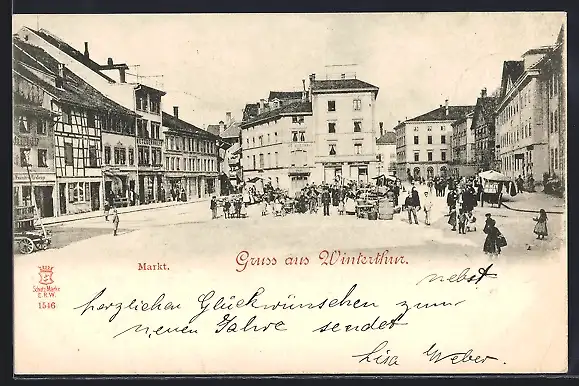 Markt.
Gruss aus Winterthur.
Schutz-Marke
C.K.W.
1546
nebst
herzlichen Glückwünschen zum
neuen Jahre sendet
Lisa Weber.